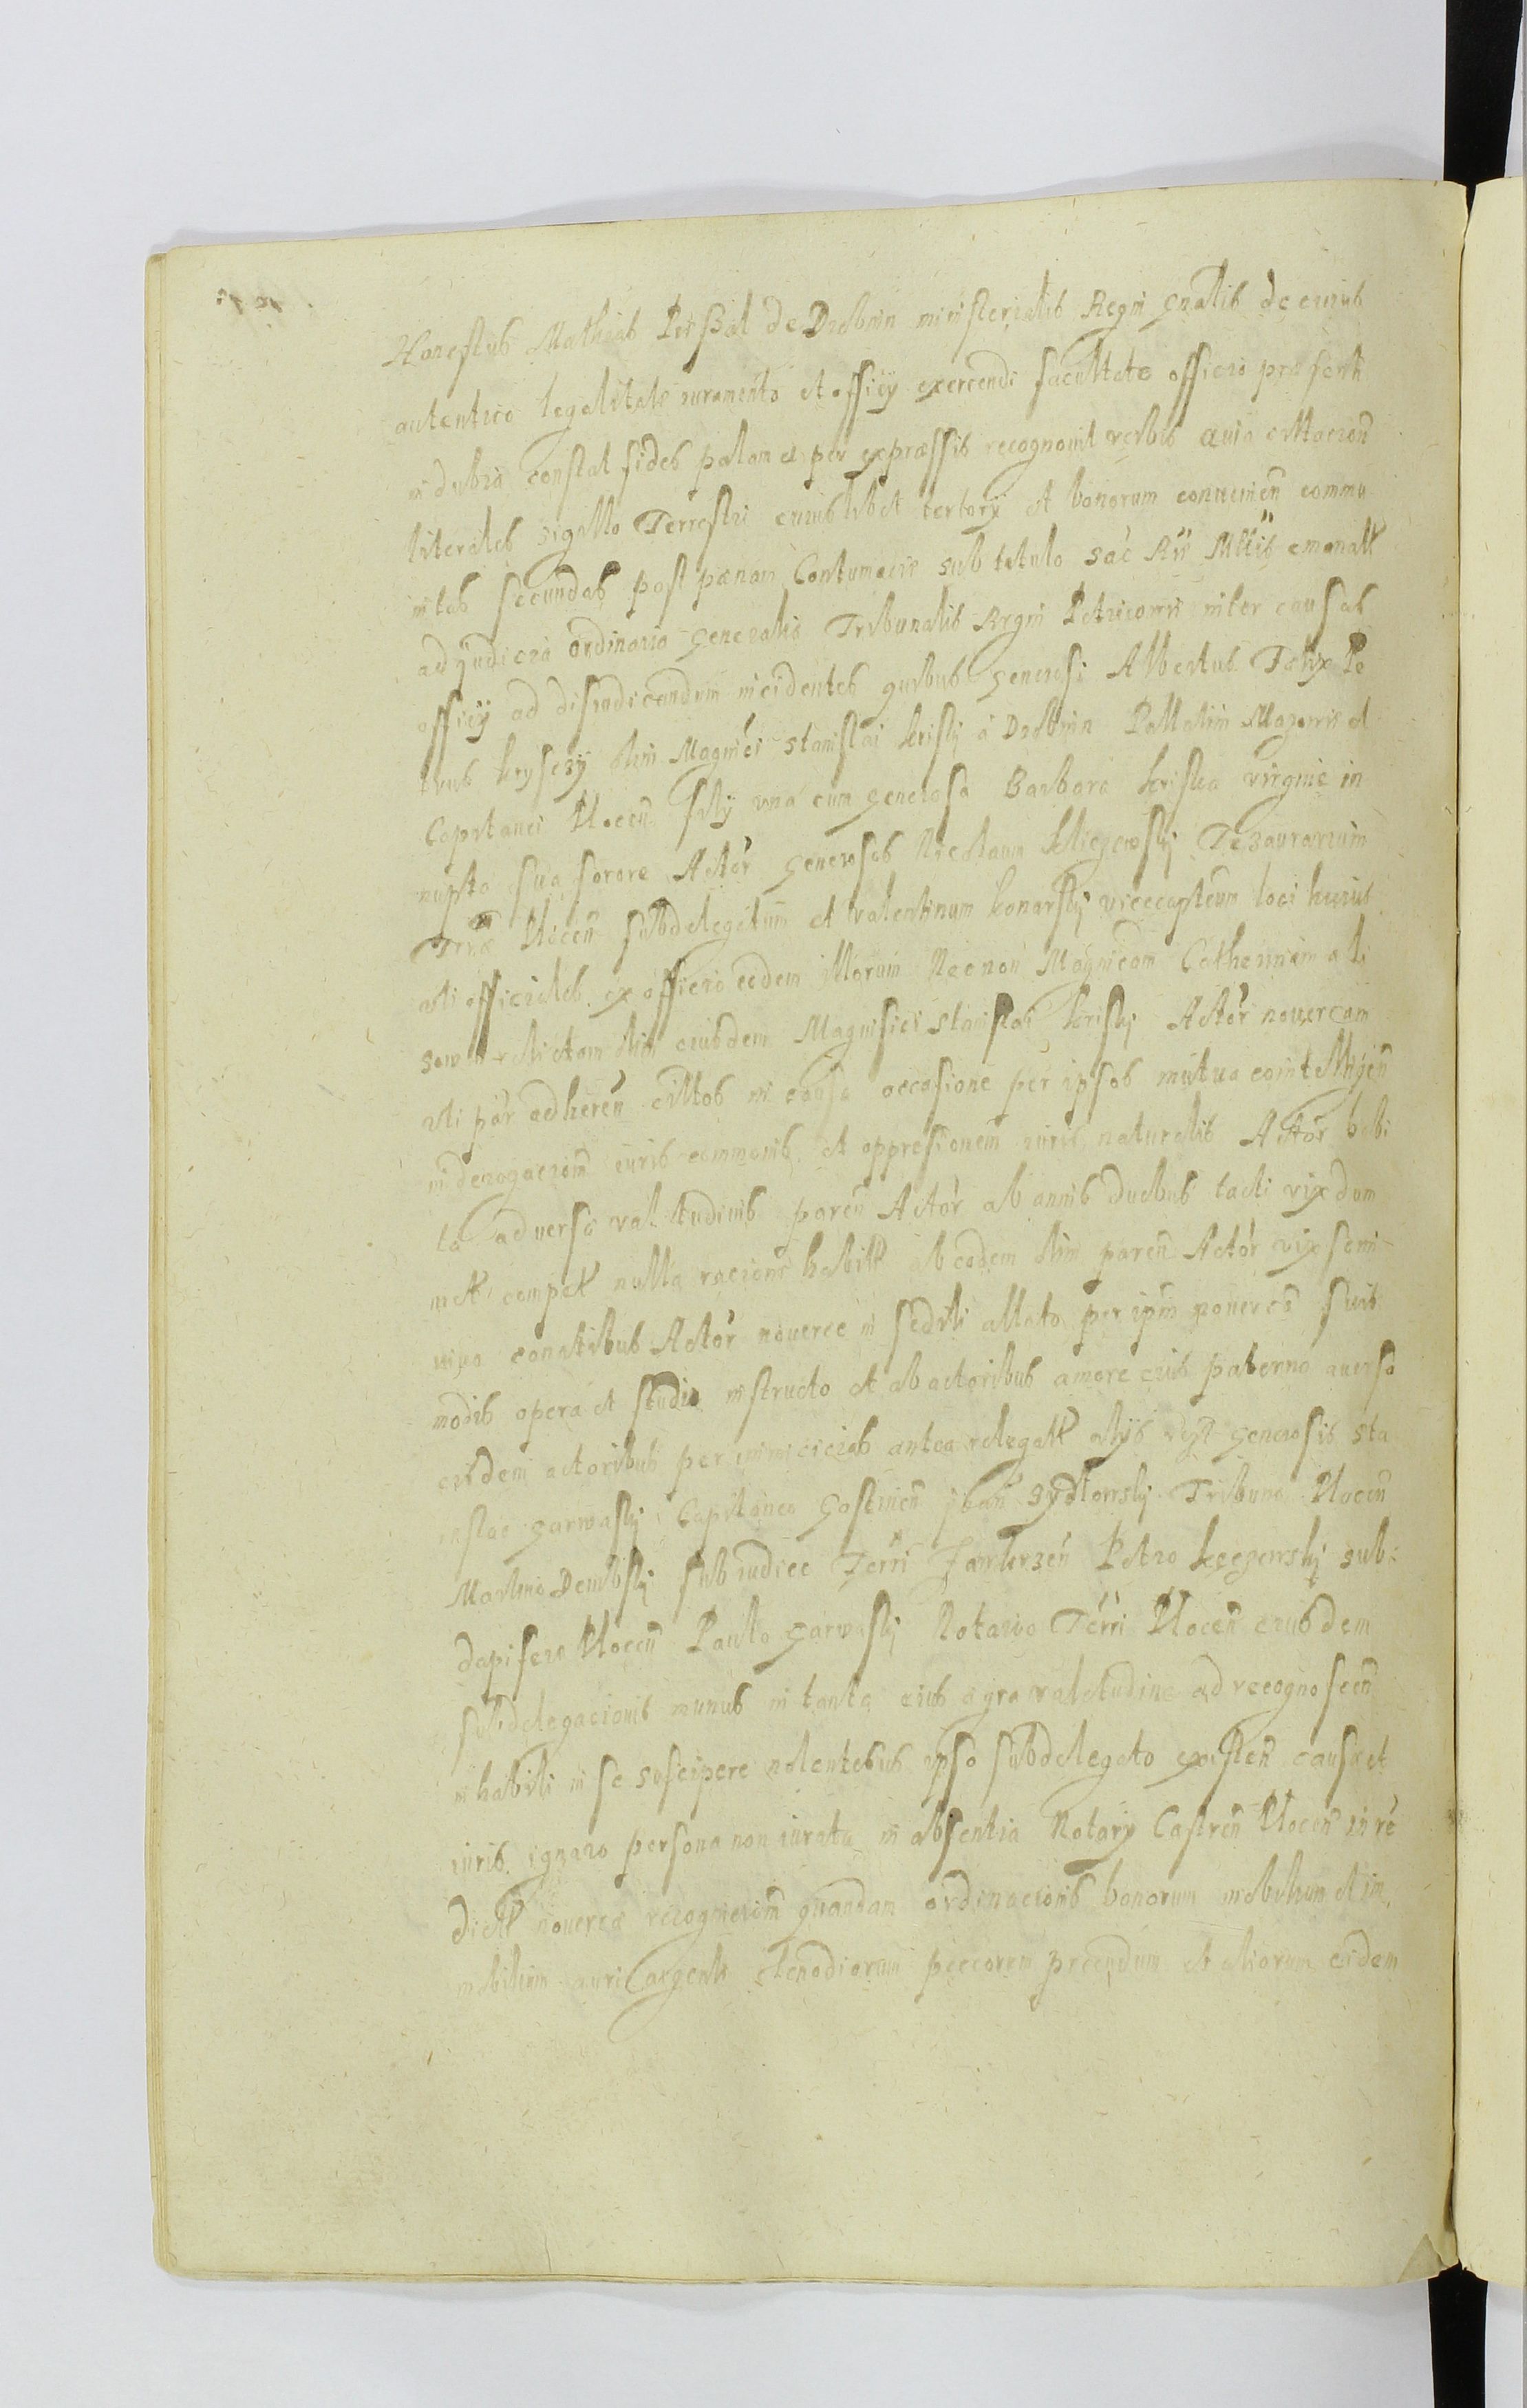 Honestus Mathias de Drobnin ministerialis Regni gnalis de cuius
autentico legalitate iuramento et officij exercendi facultate officio praesenti
indubia constat fides palam et per expraessis recognouit verbis quia cittacion
literales sigillo Terrestri cuiuslibet tertorij et bonorum conuenien commu
nitas secundas post paenam Contumacie sub titulo sac Rii Mttis emanatt
ad Judicia ordinaria generalis Tribunalis Regni Petricouien inter causas
officij ad disiudicandum incidentes quibus generosi Albertus Felix Pe
trus kryscy olim Magnici Stanislai kriskj a Drobnin Pallatini Mazouie et
Capitanei Plocen filij vna cum generosa Barbara kriska virgine in
nupta sua sorore Actor generosos Nicolaum Thezaurarium
Terrae Plocen subdelegatum et valentinum konarskj vicecapteum loci huius
acti officiales ex officio eodem illorum Necnon Magnicam Catherinam
relictam olim eiusdem Magnifici Stanislai kriskj Actor nouercam
vti par adheren cittos in causa occasione per ipsos mutua cointelligen
in derogacionem iuris communis et oppresionem iuris naturalis Actor
aduersa valitudinis paren Actor ab annis duobus tacti vixdum
nulla racione habitt ab eodem olim paren Actor vix semi
uiuo conatibus Actor nouerce in sedili allato per ipm nouercam suis
modis opera et studio instructo et ab actoribus amore eius paterno auerso
eisdem actoribus per inimicicias antea relegatt alijs generosis Sta
nislao garwaskj Capitaneo Gostinen Tribuno Plocen
Martino Dembskj subiudice Terri Petro sub:
dapifero Plocen Paulo garwaskj Notario Terri Plocen eiusdem
subdelegacionis munus in tanta eius egra valetudine ad recognoscen
inhabili in se suscipere nolentibus ipso subdelegato existen causa et
iuris ignaro persona non iurata in absentia Notarij Castren Plocen in re
dictt nouerca recognicionem quandam ordinacionis bonorum mobilium et im
mobilium auri argenti clenodiorum peccorum pecudum et aliorum eidem